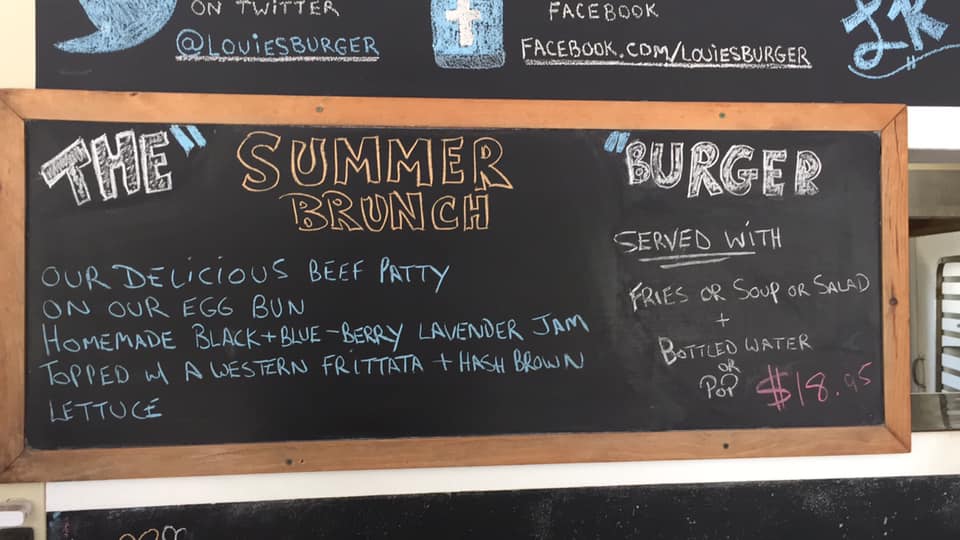 ON TWITTER
@LOUIESBURGER
FACEBOOK
FACEBOOK.COM/LOUIESBURGER
THE" SUMMER "BURGER
BRUNCH
OUR DELICIOUS BEEF PATTY
ON OUR EGG BUN
HOMEMADE BLACK+BLUE-BERRY LAVENDER JAM
TOPPED W A WESTERN FRITTATA + HASH BROWN
LETTUCE
SERVED WITH
FRIES OR SOUP OR SALAD
+
BOTTLED WATER
OR
POP $18.95